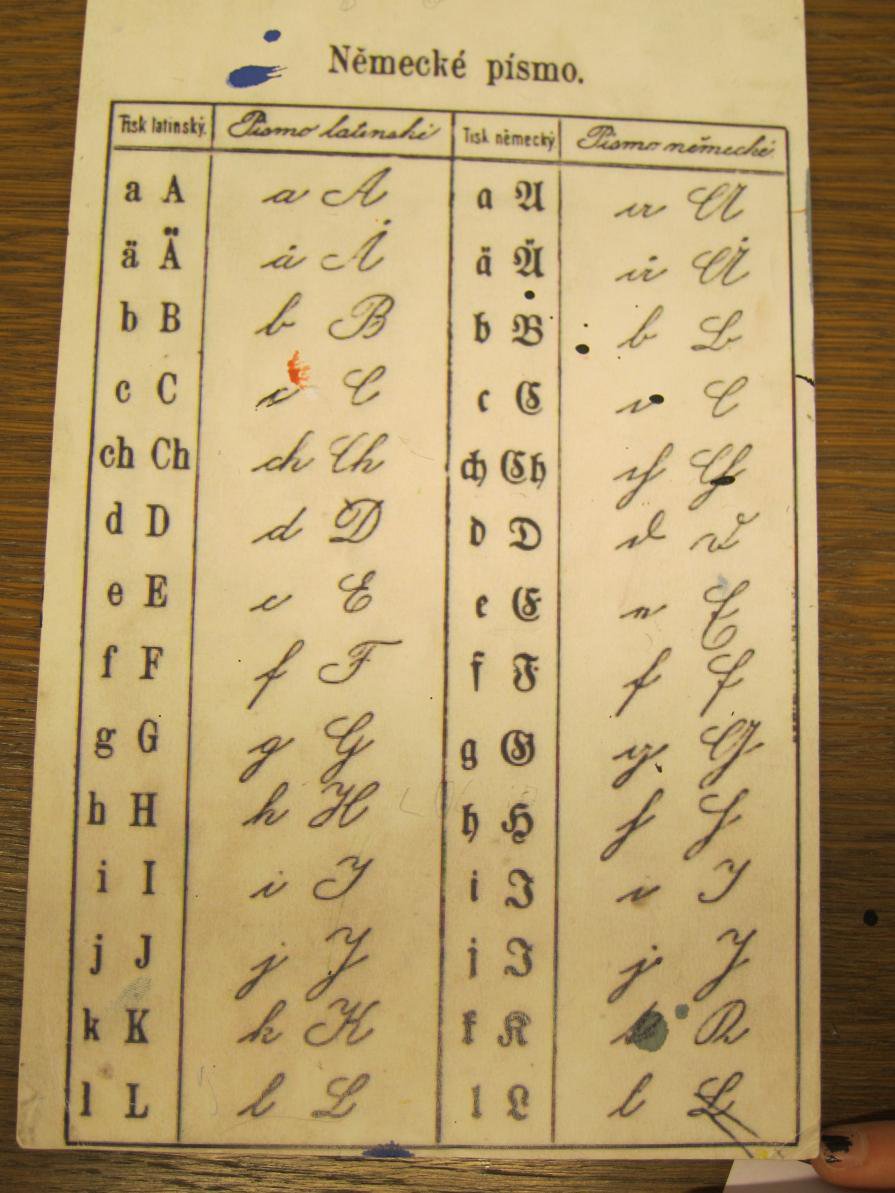 Německé písmo.
Tisk latinský. Písmo latinské Tisk německý Písmo německé
a A a A a A a A
ä Ä ä Ä ä Ä ä Ä
b B b B b B b B
c C c C c C c C
ch Ch ch Ch ch Ch ch Ch
d D d D d D d D
e E e E e E e E
f F f F f F f F
g G g G g G g G
h H h H h H h H
i I i I i I i I
j J j J j J j J
k K k K k K k K
l L l L l L l L